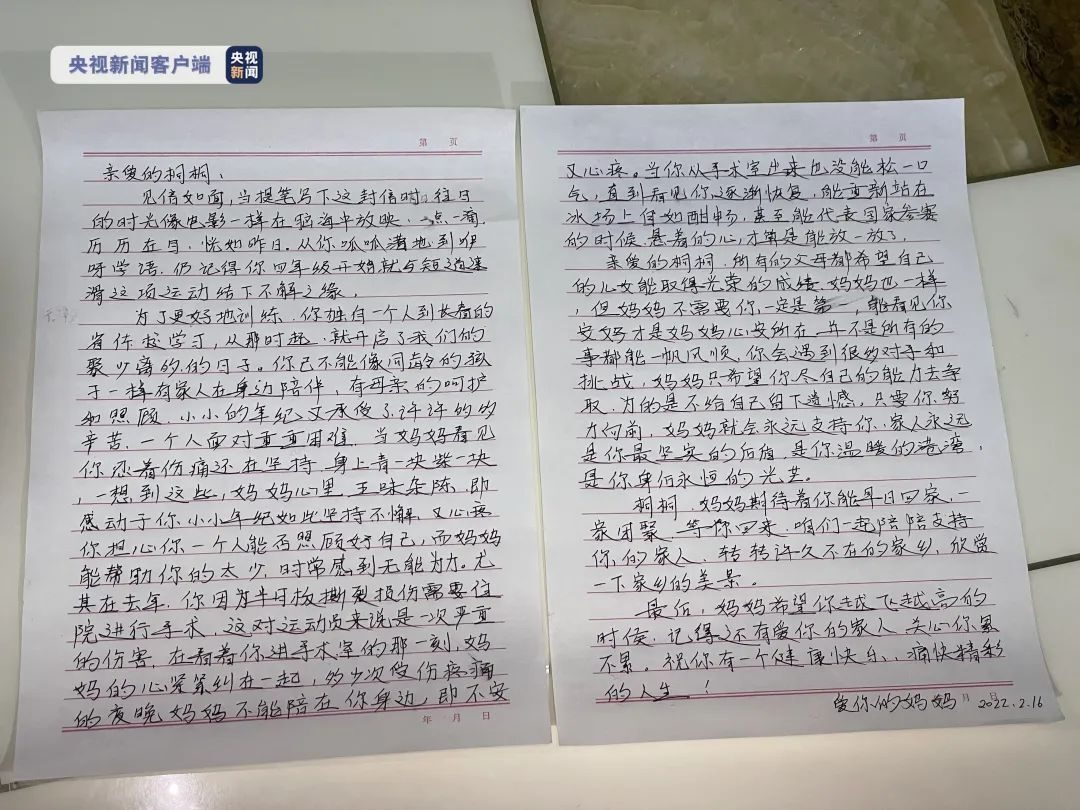 央视新闻客户端
央视
新闻
第 页
亲爱的桐桐、
见信如面,当提笔写下这封信时,往日
的时光像电影一样在脑海中放映,一点一滴
历历在目,恍如昨日。从你呱呱落地到咿
呀学语,仍记得你四年级开始就与短道速
滑这项运动结下不解之缘。
为了更好地训练,你独自一个人到长春的
省体校学习,从那时起,就开启了我们的
聚少离多的日子。你已不能像同龄的孩
子一样有家人在身边陪伴,有母亲的呵护
和照顾,小小的年纪又承受了许许多多
辛苦,一个人面对重重困难,当妈妈看见
你忍着伤痛还在坚持,身上青一块紫一块
,一想到这些,妈妈心里五味杂陈,即
感动于你小小年纪如此坚持不懈,又心疼
你担心你一个人能否照顾好自己,而妈妈
能帮助你的太少,时常感到无能为力。尤
其在去年,你因为半月板撕裂损伤需要住
院进行手术,这对运动员来说是一次严重
的伤害,在看着你进手术室的那一刻,妈
妈的心紧紧纠在一起,多少次受伤疼痛
的夜晚妈妈不能陪在你身边,即不安
年 月 日
第 页
又心疼。当你从手术室出来也没能松一口
气,直到看见你逐渐恢复,能重新站在
冰场上自如酣畅,甚至能代表国家参赛
的时候,悬着的心,才算是能放一放了。
亲爱的桐桐,所有的父母都希望自己
的儿女能取得光荣的成绩,妈妈也一样
,但妈妈不需要你一定是第一,能看见你
安好才是妈妈心安所在,并不是所有的
事都能一帆风顺,你会遇到很多对手和
挑战,妈妈只希望你尽自己的能力去争
取,为的是不给自己留下遗憾,只要你努
力向前,妈妈就会永远支持你,家人永远
是你最坚实的后盾,是你温暖的港湾,
是你身后永恒的光芒。
桐桐,妈妈期待着你能早日回家,一
家团聚,等你回来,咱们一起陪陪支持
你的家人,转转许久不在的家乡,欣赏
一下家乡的美景。
最后,妈妈希望你越飞越高的
时候,记得还有爱你的家人关心你累
不累。祝你有一个健康快乐、痛快精彩
的人生!
爱你的妈妈 月 日 2022.2.16